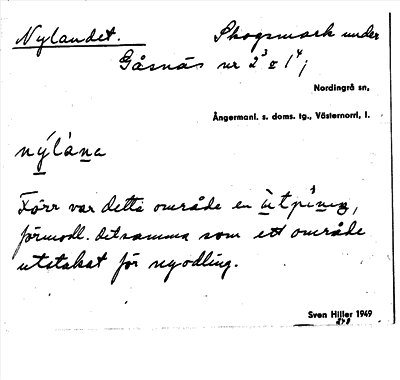 Nylandet. Skogsmark under
Gåsnäs nr 2³ o 1⁴;
Nordingrå sn,
Ångermanl. s. doms. tg., Västernorrl, l.
nýlàna
Förr var detta område en ùtpìnıŋ,
förmodl. detsamma som ett område
utstakat för nyodling.
Sven Hiller 1949